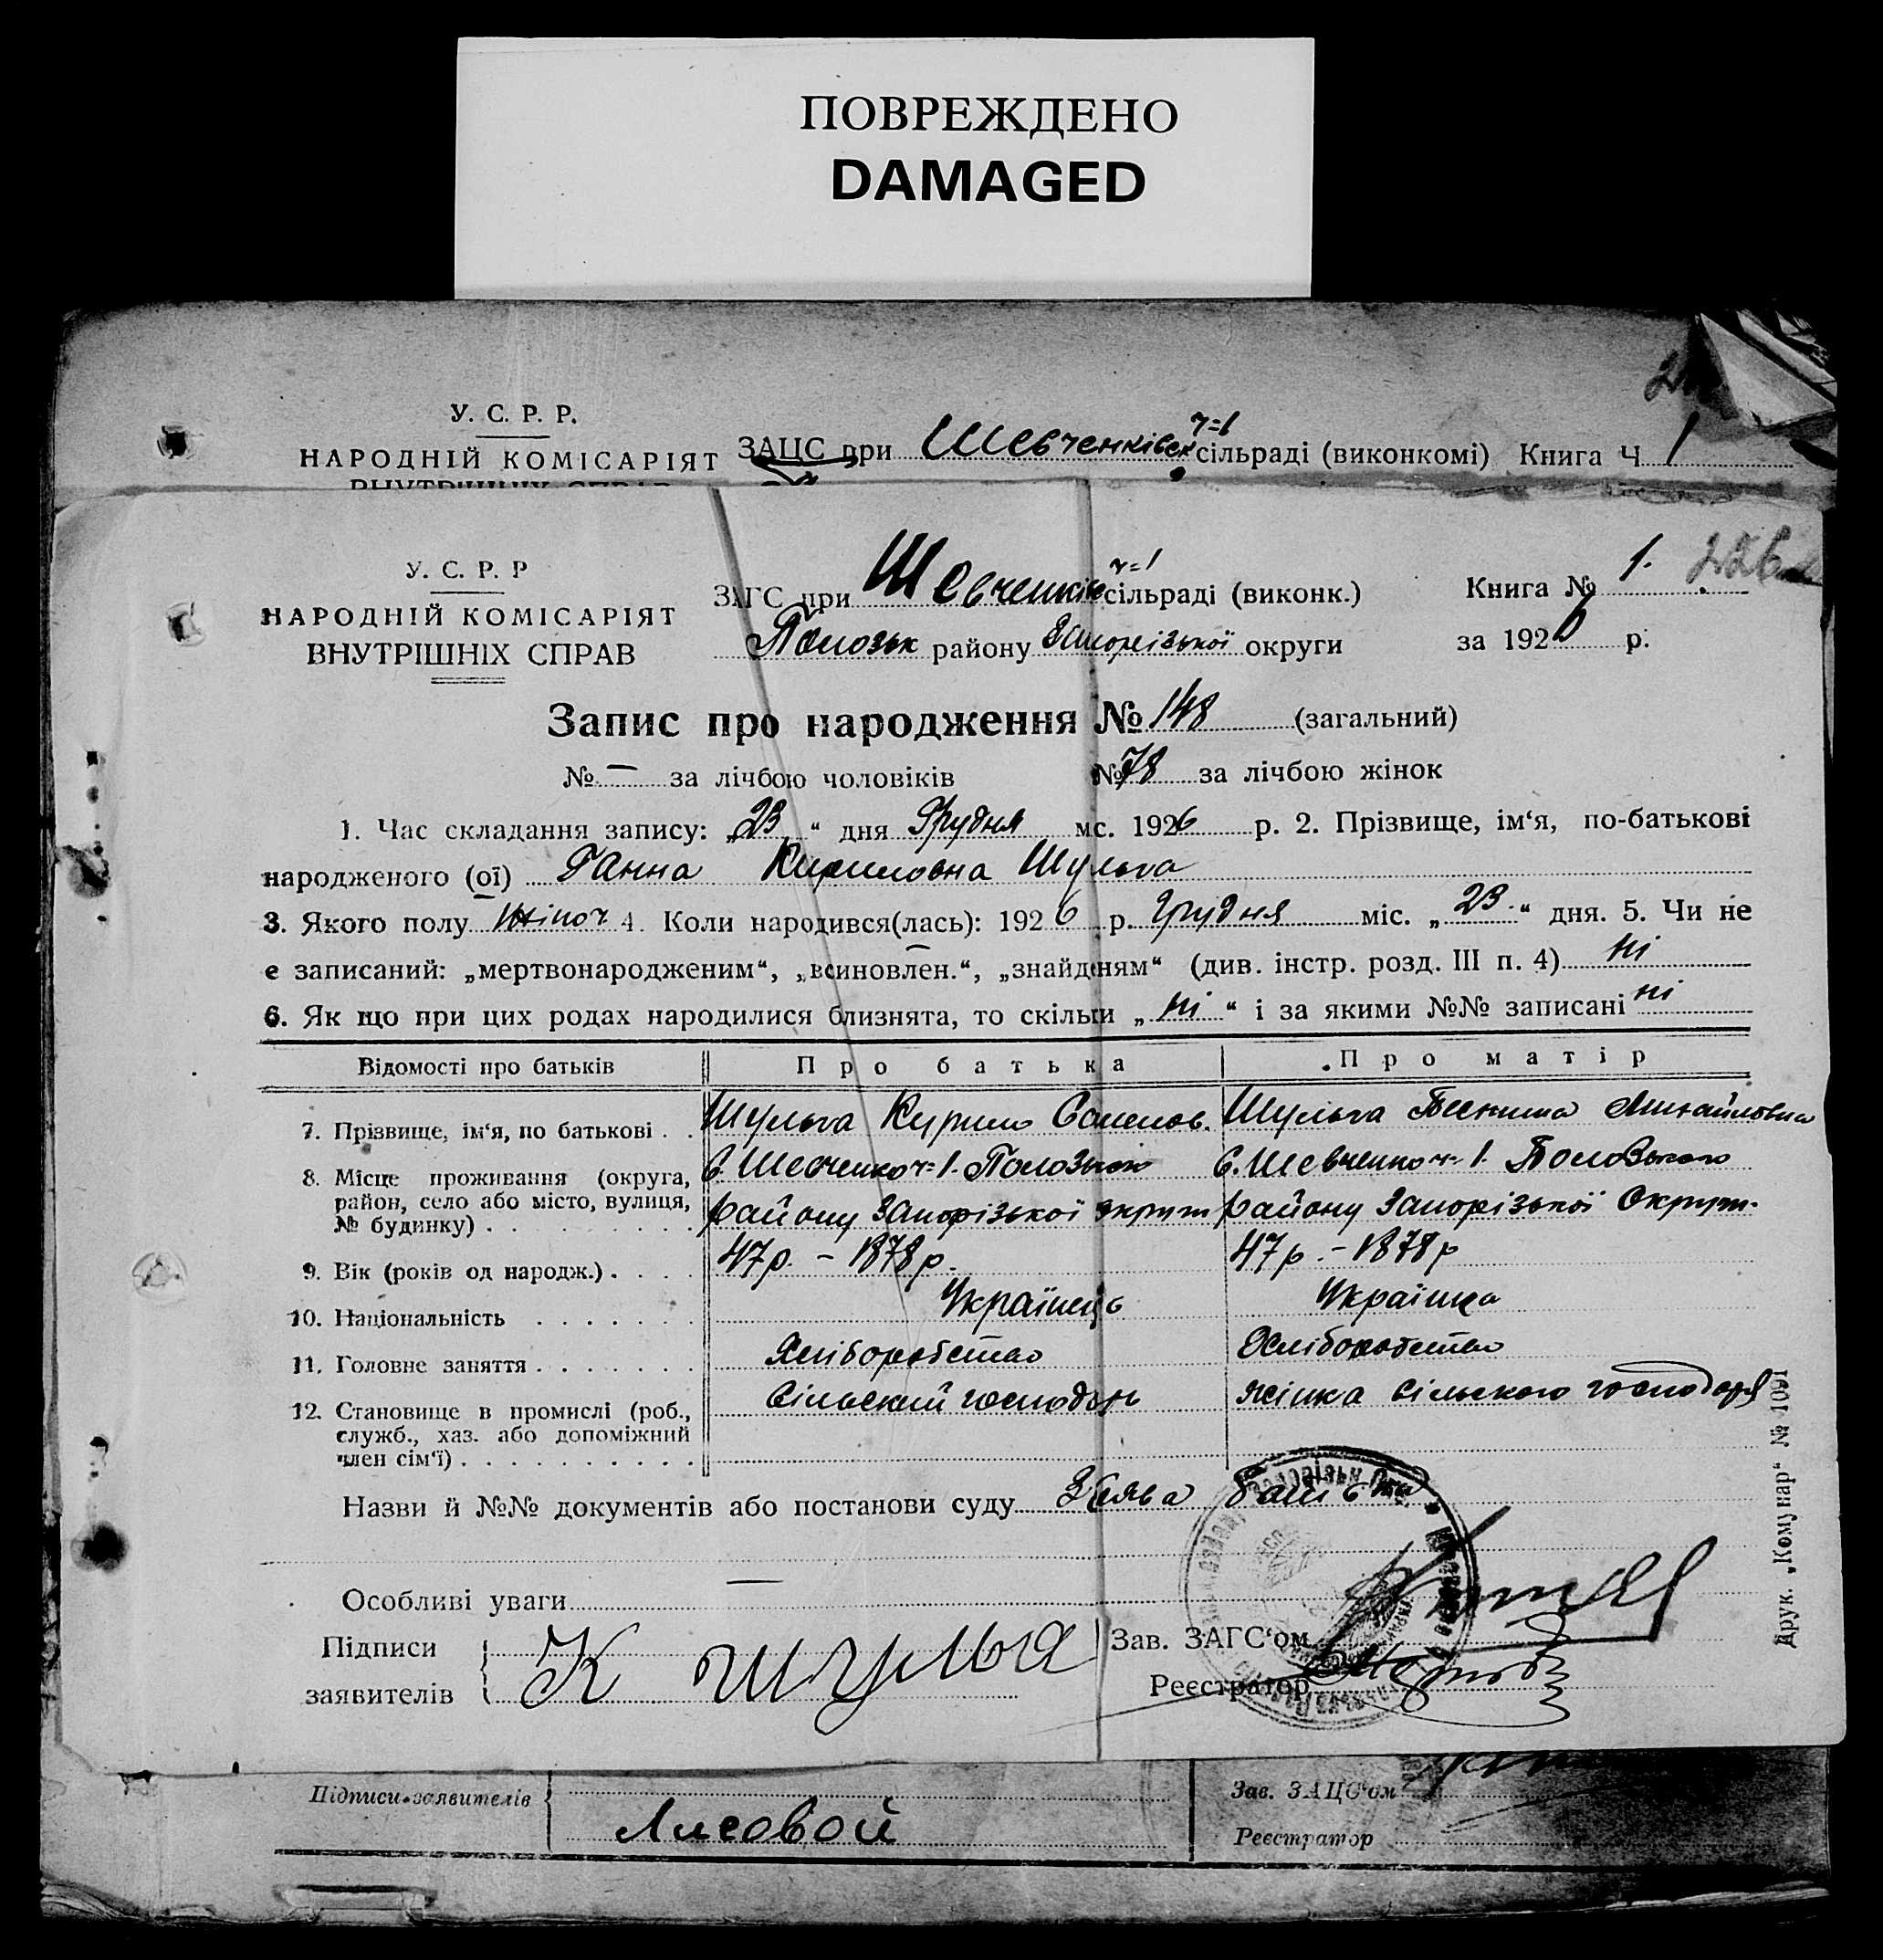 ПОВРЕЖДЕНО
DAMAGED
У. С. Р. Р.
НАРОДНІЙ КОМІСАРІЯТ ЗАЦС при Шевченківськ ч=1 сільраді (виконкомі) Книга Ч 1
У. С. Р. Р
НАРОДНІЙ КОМІСАРІЯТ
ВНУТРІШНІХ СПРАВ
ЗАГС при Шевченків ч=1 сільраді (виконк.) Книга № 1.
Полозьк району Запорізької округи за 1926 р.
Запис про народження № 148 (загальний)
№ — за лічбою чоловіків № 78 за лічбою жінок
1. Час складання запису: „23“ дня Грудня мс. 1926 р. 2. Прізвище, ім‘я, по-батькові
народженого (ої) Ганна Кириловна Шульга
3. Якого полу жіноч 4. Коли народився(лась): 1926 р. Грудня міс. „23“ дня. 5. Чи не
е записаний: „мертвонародженим“, „всиновлен.“, „знайденям“ (див. інстр. розд. III п. 4) ні
6. Як що при цих родах народилися близнята, то скільки „ні“ і за якими №№ записані ні
Відомості про батьків Про батька Про матір
7. Прізвище, ім‘я, по батькові . . Шульга Кирило Семенов. Шульга Михайловна
8. Місце проживання (округа, район, село або місто, вулиця, № будинку) . С. Шевченко ч=1. Полозького району Запорізької округи С. Шевченко ч=1. Полозького району Запорізької Округи.
9. Вік (років од народж.) . . . . 47 р. – 1878 р. 47 р. – 1878 р
10. Національність . . . . . . . Українець Українка
11. Головне заняття . . . . . . . Хліборобство Хліборобство
12. Становище в промислі (роб., служб., хаз. або допоміжний член сім‘ї) . . . . . . . . . . Сільский господарь жінка сільского господаря
Назви й №№ документів або постанови суду Заява батька
Особливі уваги —
Підписи
заявителів К Шульга
Зав. ЗАГС‘ом
Реєстратор
Друк. „Комунар“ № 1091
Підписи заявителів Лисовой
Зав. ЗАЦС‘ом
Реєстратор